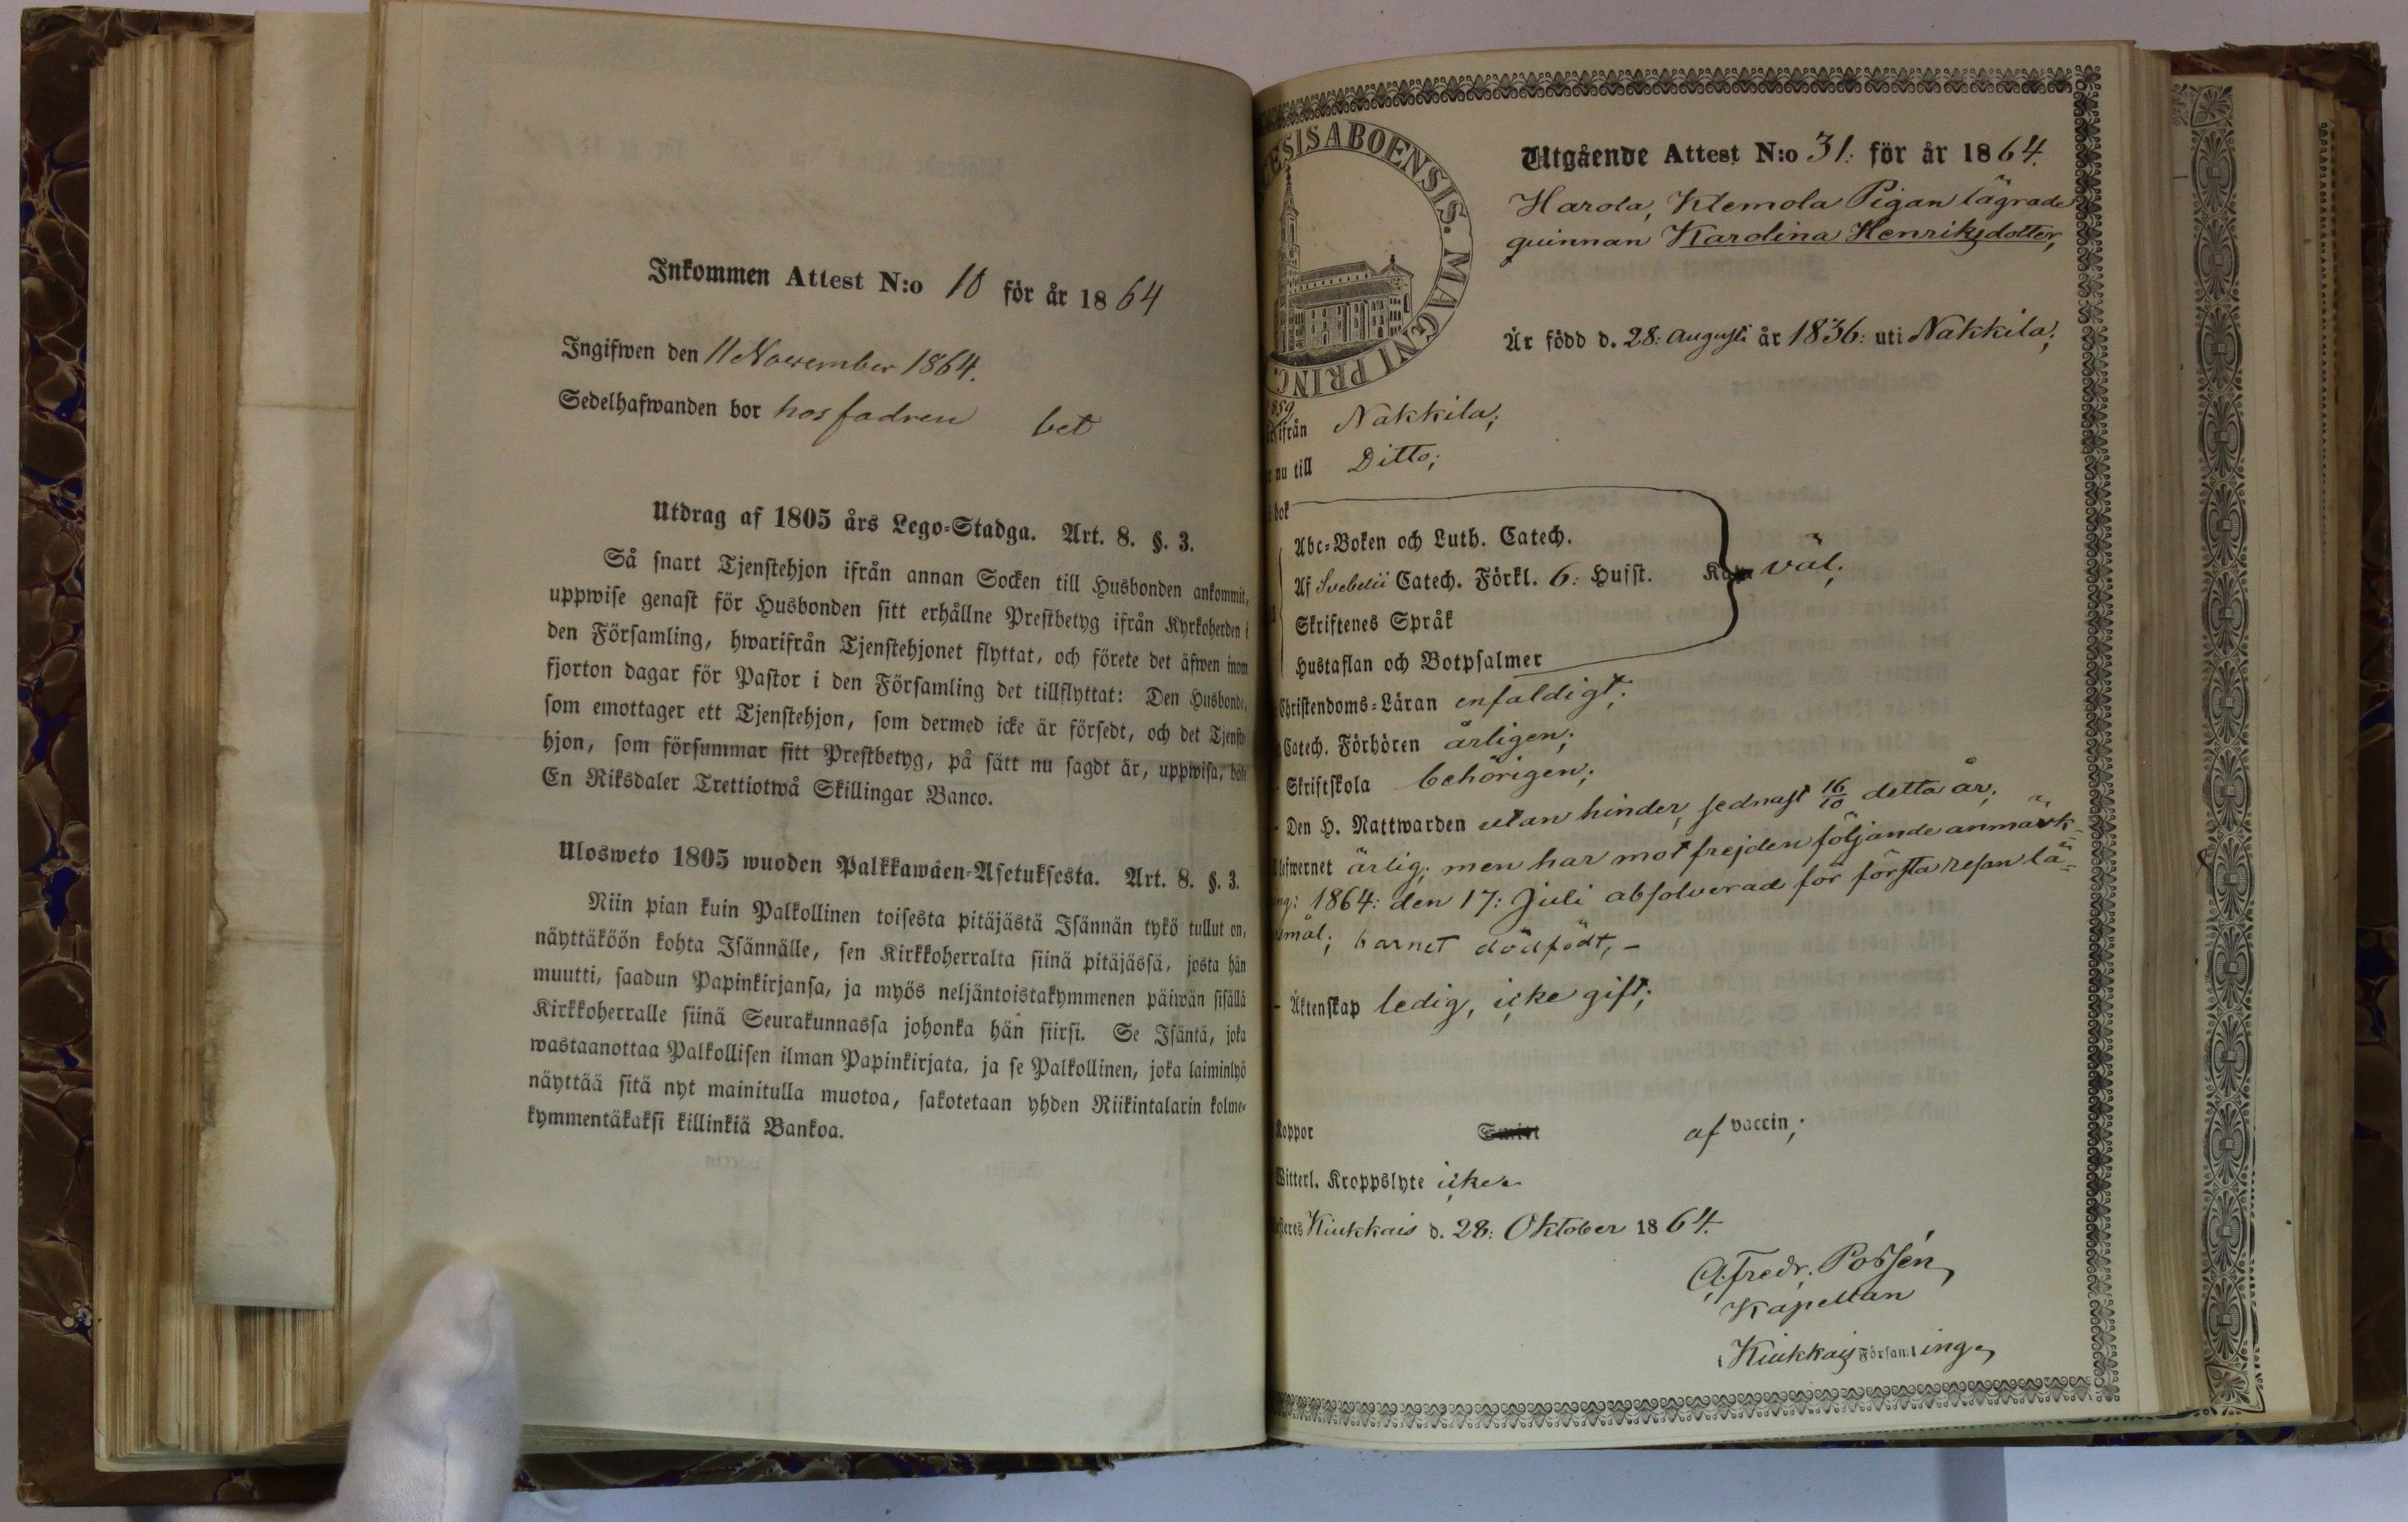 Inkommen Attest N:o 10 för år 1864
Ingifwen den 11 November 1864.
Sedelhafwanden bor hos fadren bet
Utdrag af 1805 års Lego-Stadga. Art. 8. §. 3.
Så snart Tjenstehjon ifrån annan Socken till Husbonden ankommit,
uppwise genast för Husbonden sitt erhållne Prestbetyg ifrån Kyrkoherden i
den Församling, hwarifrån Tjenstehjonet flyttat, och förete det äfwen inom
fjorton dagar för Pastor i den Församling det tillflyttat: Den Husbonde,
som emottager ett Tjenstehjon, som dermed icke är försedt, och det Tjenste-
hjon, som försummar sitt Prestbetyg, på sätt nu sagdt är, uppwisa, böte
En Riksdaler Trettiotwå Skillingar Banco.
Ulosweto 1805 wuoden Palkkawäen-Asetuksesta. Art. 8. §. 3.
Niin pian kuin Palkollinen toisesta pitäjästä Isännän tykö tullut on,
näyttäköön kohta Isännälle, sen Kirkkoherralta siinä pitäjässä, josta hän
muutti, saadun Papinkirjansa, ja myös neljäntoistakymmenen päiwän sisällä
Kirkkoherralle siinä Seurakunnassa johonka hän siirsi. Se Isäntä, joka
wastaanottaa Palkollisen ilman Papinkirjata, ja se Palkollinen, joka laiminlyö
näyttää sitä nyt mainitulla muotoa, sakotetaan yhden Riikintalarin kolme-
kymmentäkaksi killinkiä Bankoa.
CESIS ABOENSIS. MAGNI PRINC.
Utgående Attest N:o 31: för år 1864.
Harola, Klemola Pigan lägrade
quinnan Karolina Henriksdotter,
Är född d. 28: Augusti år 1836: uti Nakkila;
1859
ifrån Nakkila;
nu till Ditto;
bok
Abc-Boken och Luth. Catech.
Af Svebelii Catech. Förkl. 6: Hufst. Kan väl;
Skriftenes Språk
Hustaflan och Botpsalmer
Christendoms-Läran enfaldigt;
Catech. Förhören årligen;
Skriftskola behörigen;
Den H. Nattwarden utan hinder, sednast 16/10 detta år;
lefwernet ärlig; men har mot frejden följande anmärk-
ng: 1864: den 17: Juli absolverad för första resan lä-
smål; barnet dödfödt, -
Äktenskap ledig, icke gift;
Koppor af vaccin;
Witterl. Kroppslyte icke
Kiukkais d. 28: Oktober 1864.
A. Fredr. Possén,
Kapellan
i Kiukkais Församling